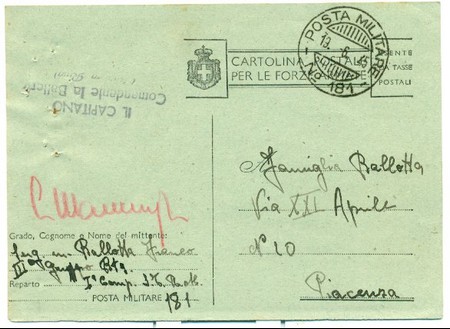 POSTA MILITARE
19. 6. 45
N. 181
CARTOLINA POSTALE
PER LE FORZE ARMATE
ESENTE
DA TASSE
POSTALI
IL CAPITANO
Comandante la Batteria
Famiglia Ballotta
Via XXI Aprile
N° 20
Piacenza
Grado, Cognome e Nome del mittente:
Serg. Ballotta Franco
III Gruppo
Reparto I° Comp.
POSTA MILITARE 181